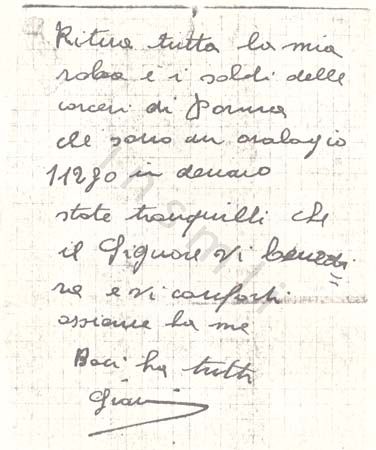 Ritira tutta la mia
roba e i soldi delle
carceri di Parma
che sono un orologio
11280 in denaro
state tranquilli che
il Signore vi benedi
ra e vi conforti
assieme ha me
Baci ha tutti
insmli